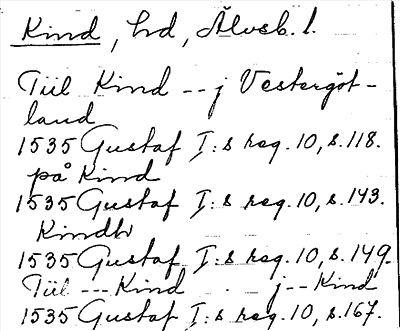 Kind, hd, Älvsb. l.
Tiil Kind -- j Vestergöt-
land
1535 Gustaf I:s reg. 10, s. 118.
på Kind
1535 Gustaf I:s reg. 10, s. 143.
Kindh
1535 Gustaf I:s reg. 10, s. 149.
Tiil --- Kind - j -- Kind
1535 Gustaf I:s reg. 10, s. 167.